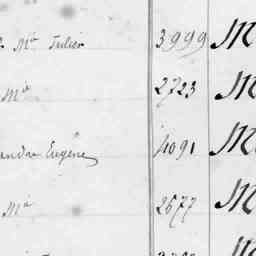 Mie Julien 3999 M
Mie 2723 M
andre Eugène 4091 M
Mie 2677 M